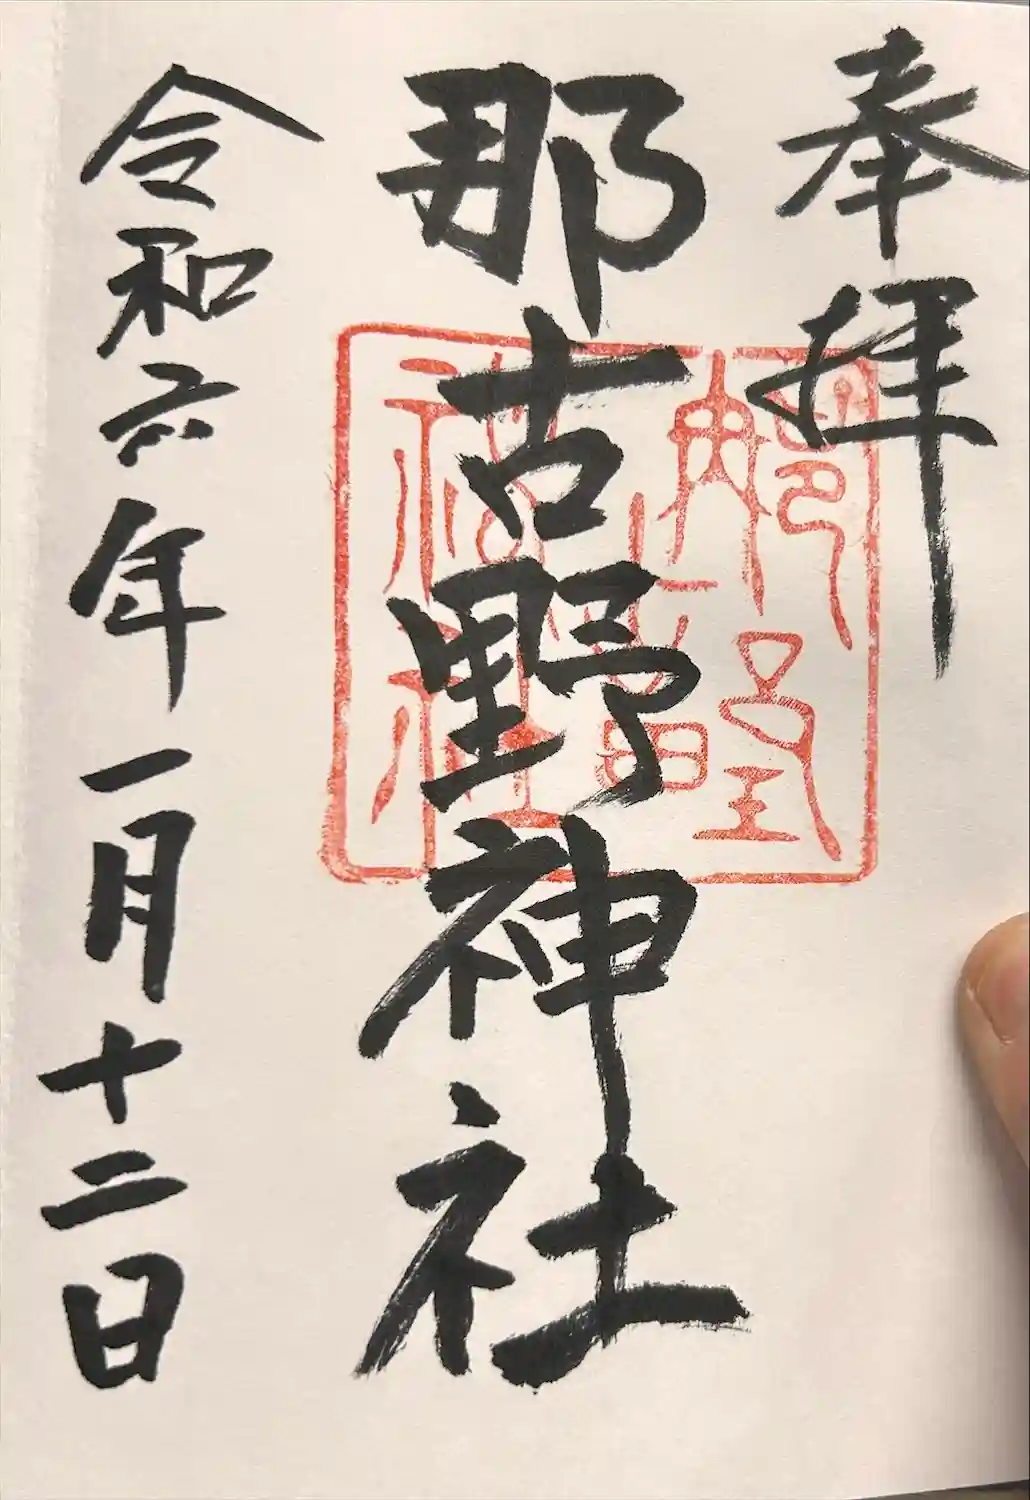 奉拝
那古野神社
令和六年一月十二日